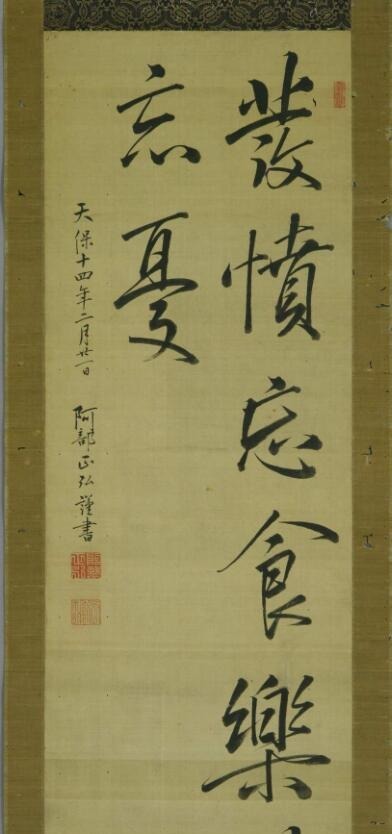 發憤忘食樂
忘憂
天保十四年二月廿一日 阿部正弘謹書